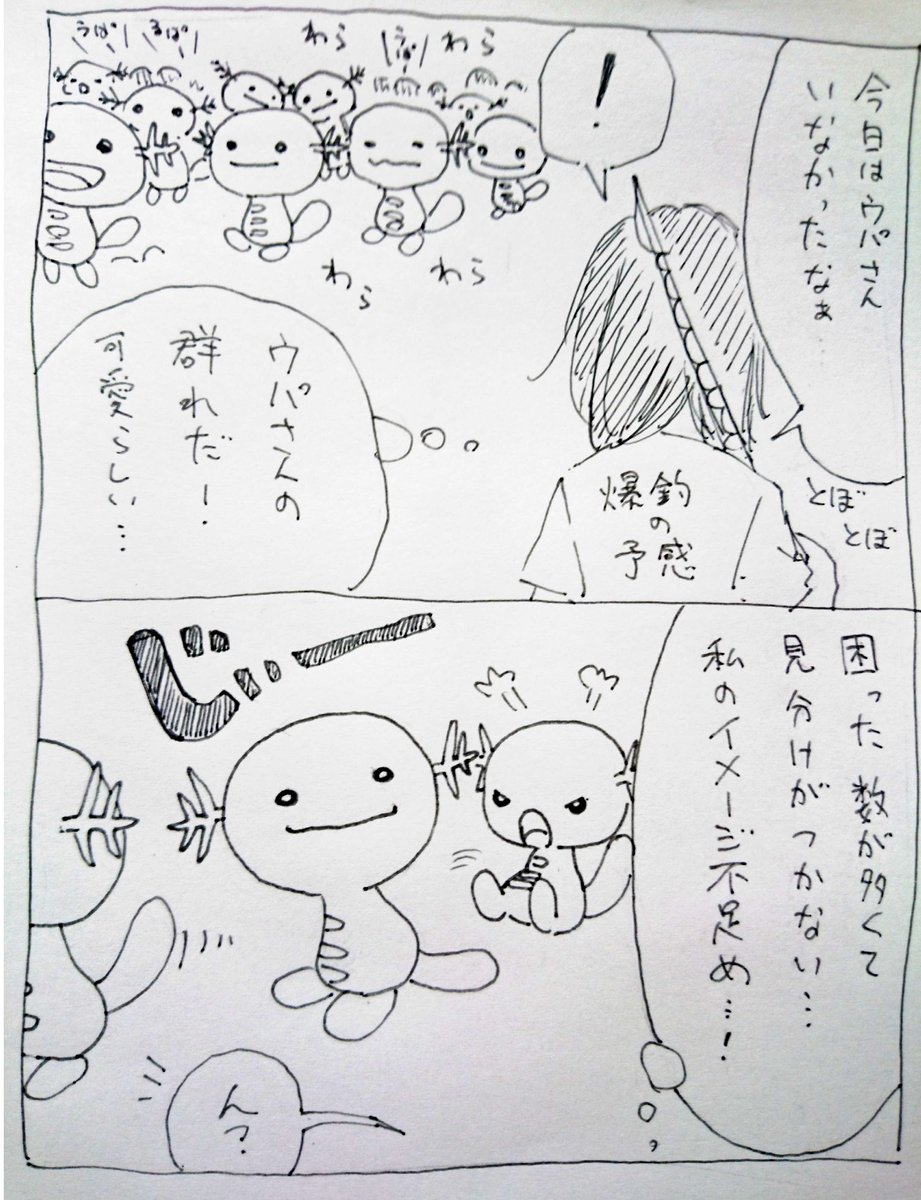 今日はウパさん
いなかったなぁ…
とぼ
とぼ
！
わら
うぱ
わら
るぱ
うぱ
わら
わら
爆釣
の
予感
ウパさんの
群れだ！
可愛らしい…
困った数が多くて
見分けがつかない…
私のイメージ不足め…！
じぃー
ん？